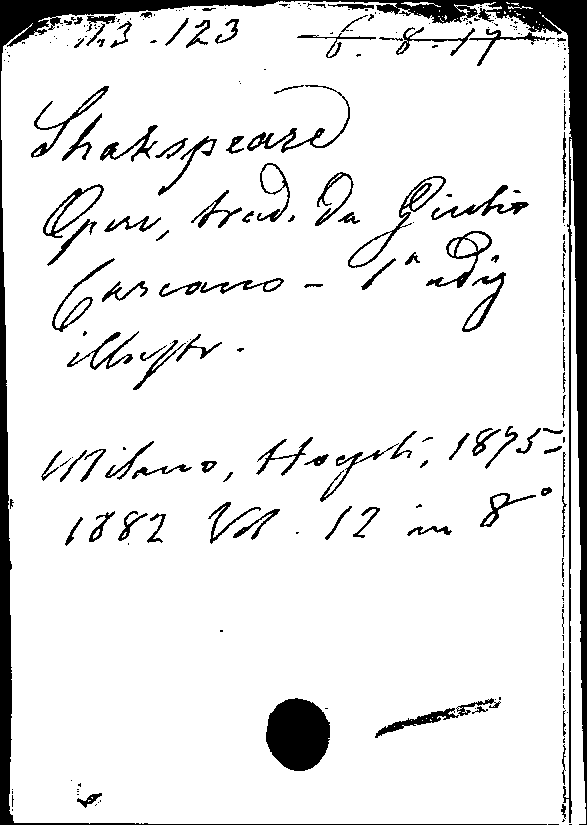 113.123 6.8.17
Shakspeare
Opere, trad. da Giulio
Carcano - 1ª ediz
illustr.
Milano, Hoepli, 1875-
1882 Vol. 12 in 8°